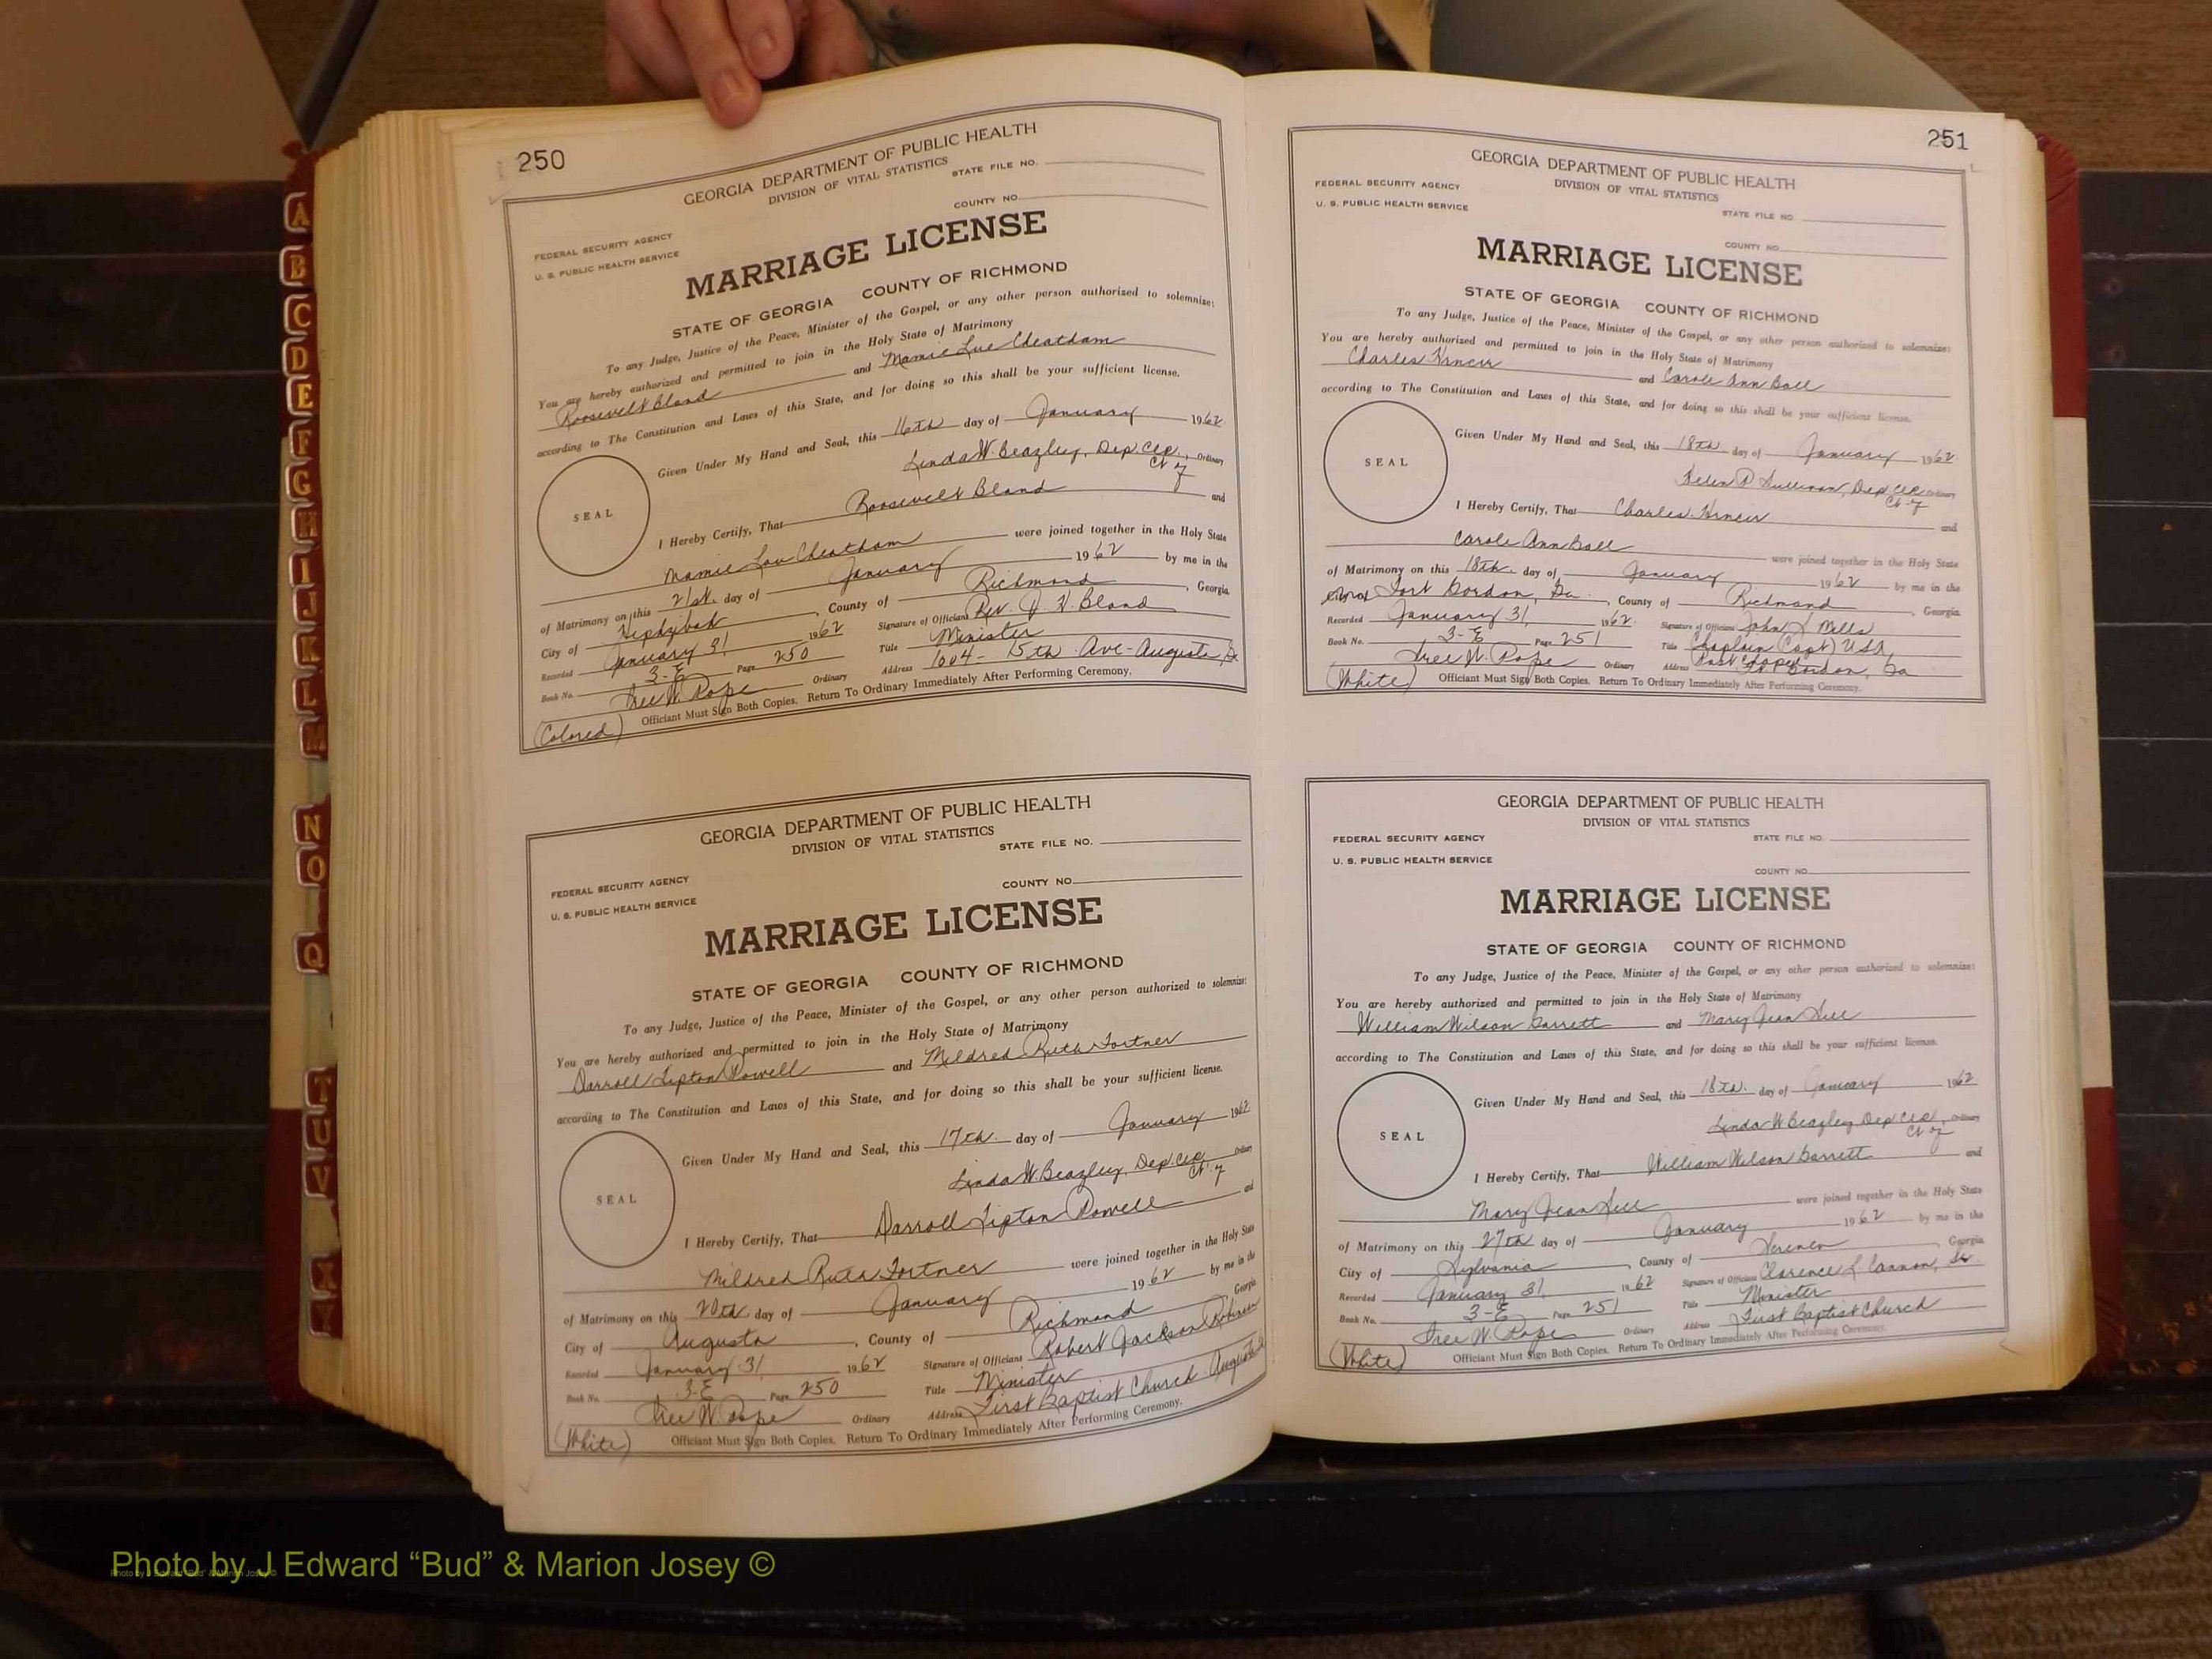 250
GEORGIA DEPARTMENT OF PUBLIC HEALTH
DIVISION OF VITAL STATISTICS
STATE FILE NO.
COUNTY NO.
FEDERAL SECURITY AGENCY
U. S. PUBLIC HEALTH SERVICE
MARRIAGE LICENSE
STATE OF GEORGIA COUNTY OF RICHMOND
To any Judge, Justice of the Peace, Minister of the Gospel, or any other person authorized to solemnize:
You are hereby authorized and permitted to join in the Holy State of Matrimony
Roosevelt Bland and Mamie Lue Cheatham
according to The Constitution and Laws of this State, and for doing so this shall be your sufficient license.
Given Under My Hand and Seal, this 16th day of January 1962
Linda W. Beazley, Dep. Clk., Ordinary
Ct of
SEAL
I Hereby Certify, That Roosevelt Bland and
Mamie Lou Cheatham were joined together in the Holy State
of Matrimony on this 21st. day of January 1962 by me in the
City of Hephzibah, County of Richmond, Georgia
Recorded January 31 1962 Signature of Official Rev. J. H. Bland
Book No. 3-E Page 250 Title Minister
Tree W. Pope Ordinary Address 1004 - 15th Ave - Augusta, Ga
(Colored) Officiant Must Sign Both Copies. Return To Ordinary Immediately After Performing Ceremony.
GEORGIA DEPARTMENT OF PUBLIC HEALTH
DIVISION OF VITAL STATISTICS
STATE FILE NO.
COUNTY NO.
FEDERAL SECURITY AGENCY
U. S. PUBLIC HEALTH SERVICE
MARRIAGE LICENSE
STATE OF GEORGIA COUNTY OF RICHMOND
To any Judge, Justice of the Peace, Minister of the Gospel, or any other person authorized to solemnize:
You are hereby authorized and permitted to join in the Holy State of Matrimony
Darroll Tipton Powell and Mildred Ruth Fortner
according to The Constitution and Laws of this State, and for doing so this shall be your sufficient license.
Given Under My Hand and Seal, this 17th. day of January 1962
Linda W. Beazley, Dep. Clk. Ordinary
Ct. of
SEAL
I Hereby Certify, That Darroll Tipton Powell and
Mildred Ruth Fortner were joined together in the Holy State
of Matrimony on this 20th. day of January 1962 by me in the
City of Augusta, County of Richmond Georgia
Recorded January 31 1962 Signature of Officiant Robert Jackson Robinson
Book No. 3-E Page 250 Title Minister
Tree W. Pope Ordinary Address First Baptist Church - Augusta
(White) Officiant Must Sign Both Copies. Return To Ordinary Immediately After Performing Ceremony.
251
GEORGIA DEPARTMENT OF PUBLIC HEALTH
DIVISION OF VITAL STATISTICS
FEDERAL SECURITY AGENCY
U. S. PUBLIC HEALTH SERVICE
STATE FILE NO.
COUNTY NO.
MARRIAGE LICENSE
STATE OF GEORGIA COUNTY OF RICHMOND
To any Judge, Justice of the Peace, Minister of the Gospel, or any other person authorized to solemnize:
You are hereby authorized and permitted to join in the Holy State of Matrimony
Charles and Carole Ann Ball
according to The Constitution and Laws of this State, and for doing so this shall be your sufficient license.
Given Under My Hand and Seal, this 18th day of January 1962
Helen P. Sullivan, Dep Clk Ordinary
Ct. of
SEAL
I Hereby Certify, That Charles and
Carole Ann Ball were joined together in the Holy State
of Matrimony on this 18th. day of January 1962 by me in the
Fort Gordon, Ga., County of Richmond, Georgia
Recorded January 31, 1962. Signature of Official John L Mills
Book No. 3-E Page 251 Title Chaplain (Capt) USA
Tree W. Pope Ordinary Address Post Chapel Ft Gordon, Ga
(White) Officiant Must Sign Both Copies. Return To Ordinary Immediately After Performing Ceremony.
GEORGIA DEPARTMENT OF PUBLIC HEALTH
DIVISION OF VITAL STATISTICS
FEDERAL SECURITY AGENCY
STATE FILE NO.
U. S. PUBLIC HEALTH SERVICE
COUNTY NO.
MARRIAGE LICENSE
STATE OF GEORGIA COUNTY OF RICHMOND
To any Judge, Justice of the Peace, Minister of the Gospel, or any other person authorized to solemnize:
You are hereby authorized and permitted to join in the Holy State of Matrimony
William Wilson Garrett and Mary Jean
according to The Constitution and Laws of this State, and for doing so this shall be your sufficient license.
Given Under My Hand and Seal, this 18th. day of January 1962
Linda W Beazley Dep. Clk., Ordinary
Ct of
SEAL
I Hereby Certify, That William Wilson Garrett and
Mary Jean were joined together in the Holy State
of Matrimony on this 27th day of January 1962 by me in the
City of Sylvania, County of Screven, Georgia
Recorded January 31, 1962 Signature of Official Clarence L Cannon, Sr.
Book No. 3-E Page 251 Title Minister
Tree W. Pope Ordinary Address First Baptist Church
(White) Officiant Must Sign Both Copies. Return To Ordinary Immediately After Performing Ceremony.
A
B
C
D
E
F
G
H
I
J
K
L
M
N
O
Q
T
U
V
X
Y
Photo by J Edward “Bud” & Marion Josey ©
Photo by J Edward “Bud” & Marion Josey ©